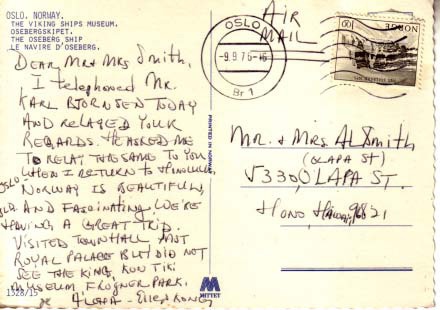 OSLO, NORWAY.
THE VIKING SHIPS MUSEUM.
OSEBERGSKIPET.
THE OSEBERG SHIP
LE NAVIRE D'OSEBERG.
DEAR MR + MRS SMITH,
I TELEPHONED MR.
KARL BJORNSEN TODAY
AND RELAYED YOUR
REGARDS. HE ASKED ME
TO RELAY THE SAME TO YOU
WHEN I RETURN TO HONOLULU.
OSLO, NORWAY IS BEAUTIFUL,
OLD AND FASCINATING. WE'RE
HAVING A GREAT TRIP.
VISITED TOWNHALL, PAST
ROYAL PALACE BUT DID NOT
SEE THE KING, KON TIKI
MUSEUM, FROGNER PARK.
ALOHA - Ellen Kong
1528/15
PRINTED IN NORWAY
MITTET
AIR
MAIL
OSLO
-9.9.76-16
Br 1
NORGE
60
MR. + MRS. AL SMITH
(OLAPA ST)
5330 OLAPA ST.
HONO, HAWAII, 96821